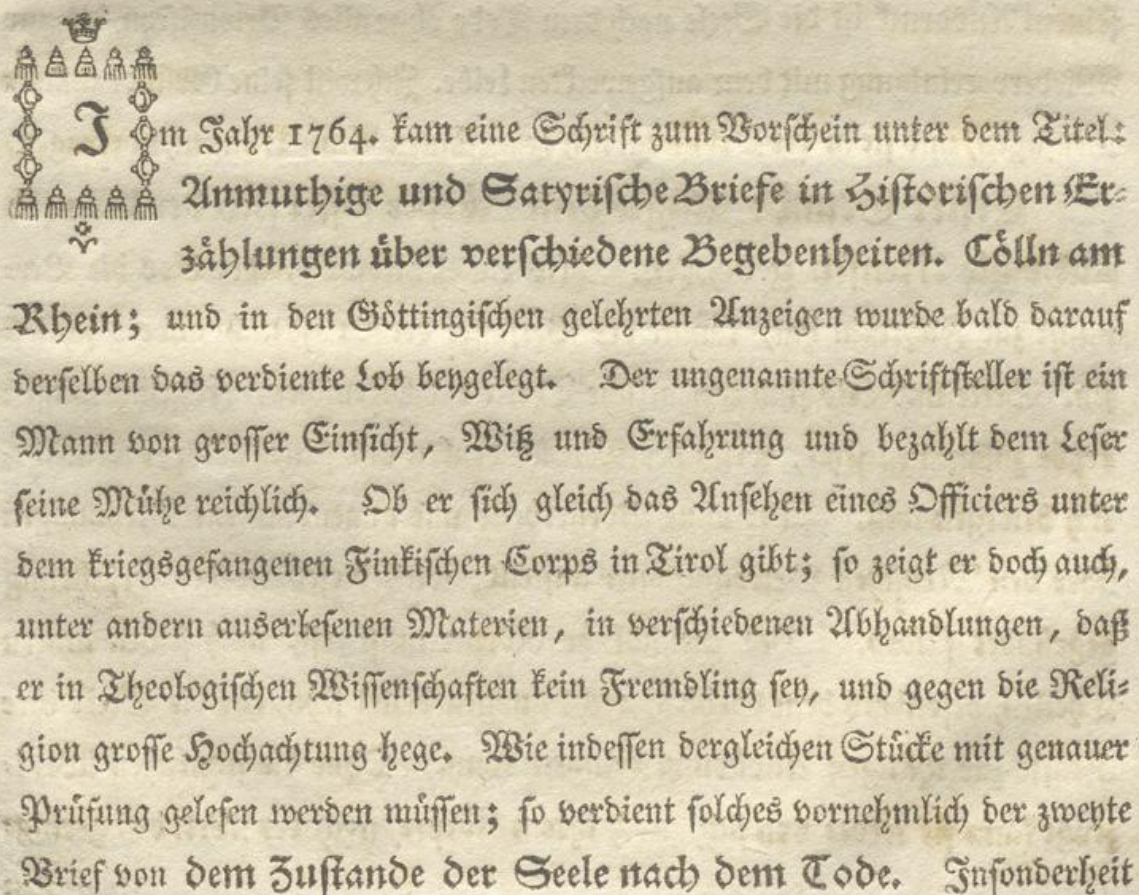 Im Jahr 1764. kam eine Schrift zum Vorschein unter dem Titel:
Anmuthige und Satyrische Briefe in Historischen Er-
zählungen über verschiedene Begebenheiten. Cölln am
Rhein; und in den Göttingischen gelehrten Anzeigen wurde bald darauf
derselben das verdiente Lob beygelegt. Der ungenannte Schriftsteller ist ein
Mann von grosser Einsicht, Witz und Erfahrung und bezahlt dem Leser
seine Mühe reichlich. Ob er sich gleich das Ansehen eines Officiers unter
dem kriegsgefangenen Finkischen Corps in Tirol gibt; so zeigt er doch auch,
unter andern auserlesenen Materien, in verschiedenen Abhandlungen, daß
er in Theologischen Wissenschaften kein Fremdling sey, und gegen die Reli-
gion grosse Hochachtung hege. Wie indessen dergleichen Stücke mit genauer
Prüfung gelesen werden müssen; so verdient solches vornehmlich der zweyte
Brief von dem Zustande der Seele nach dem Tode. Insonderheit